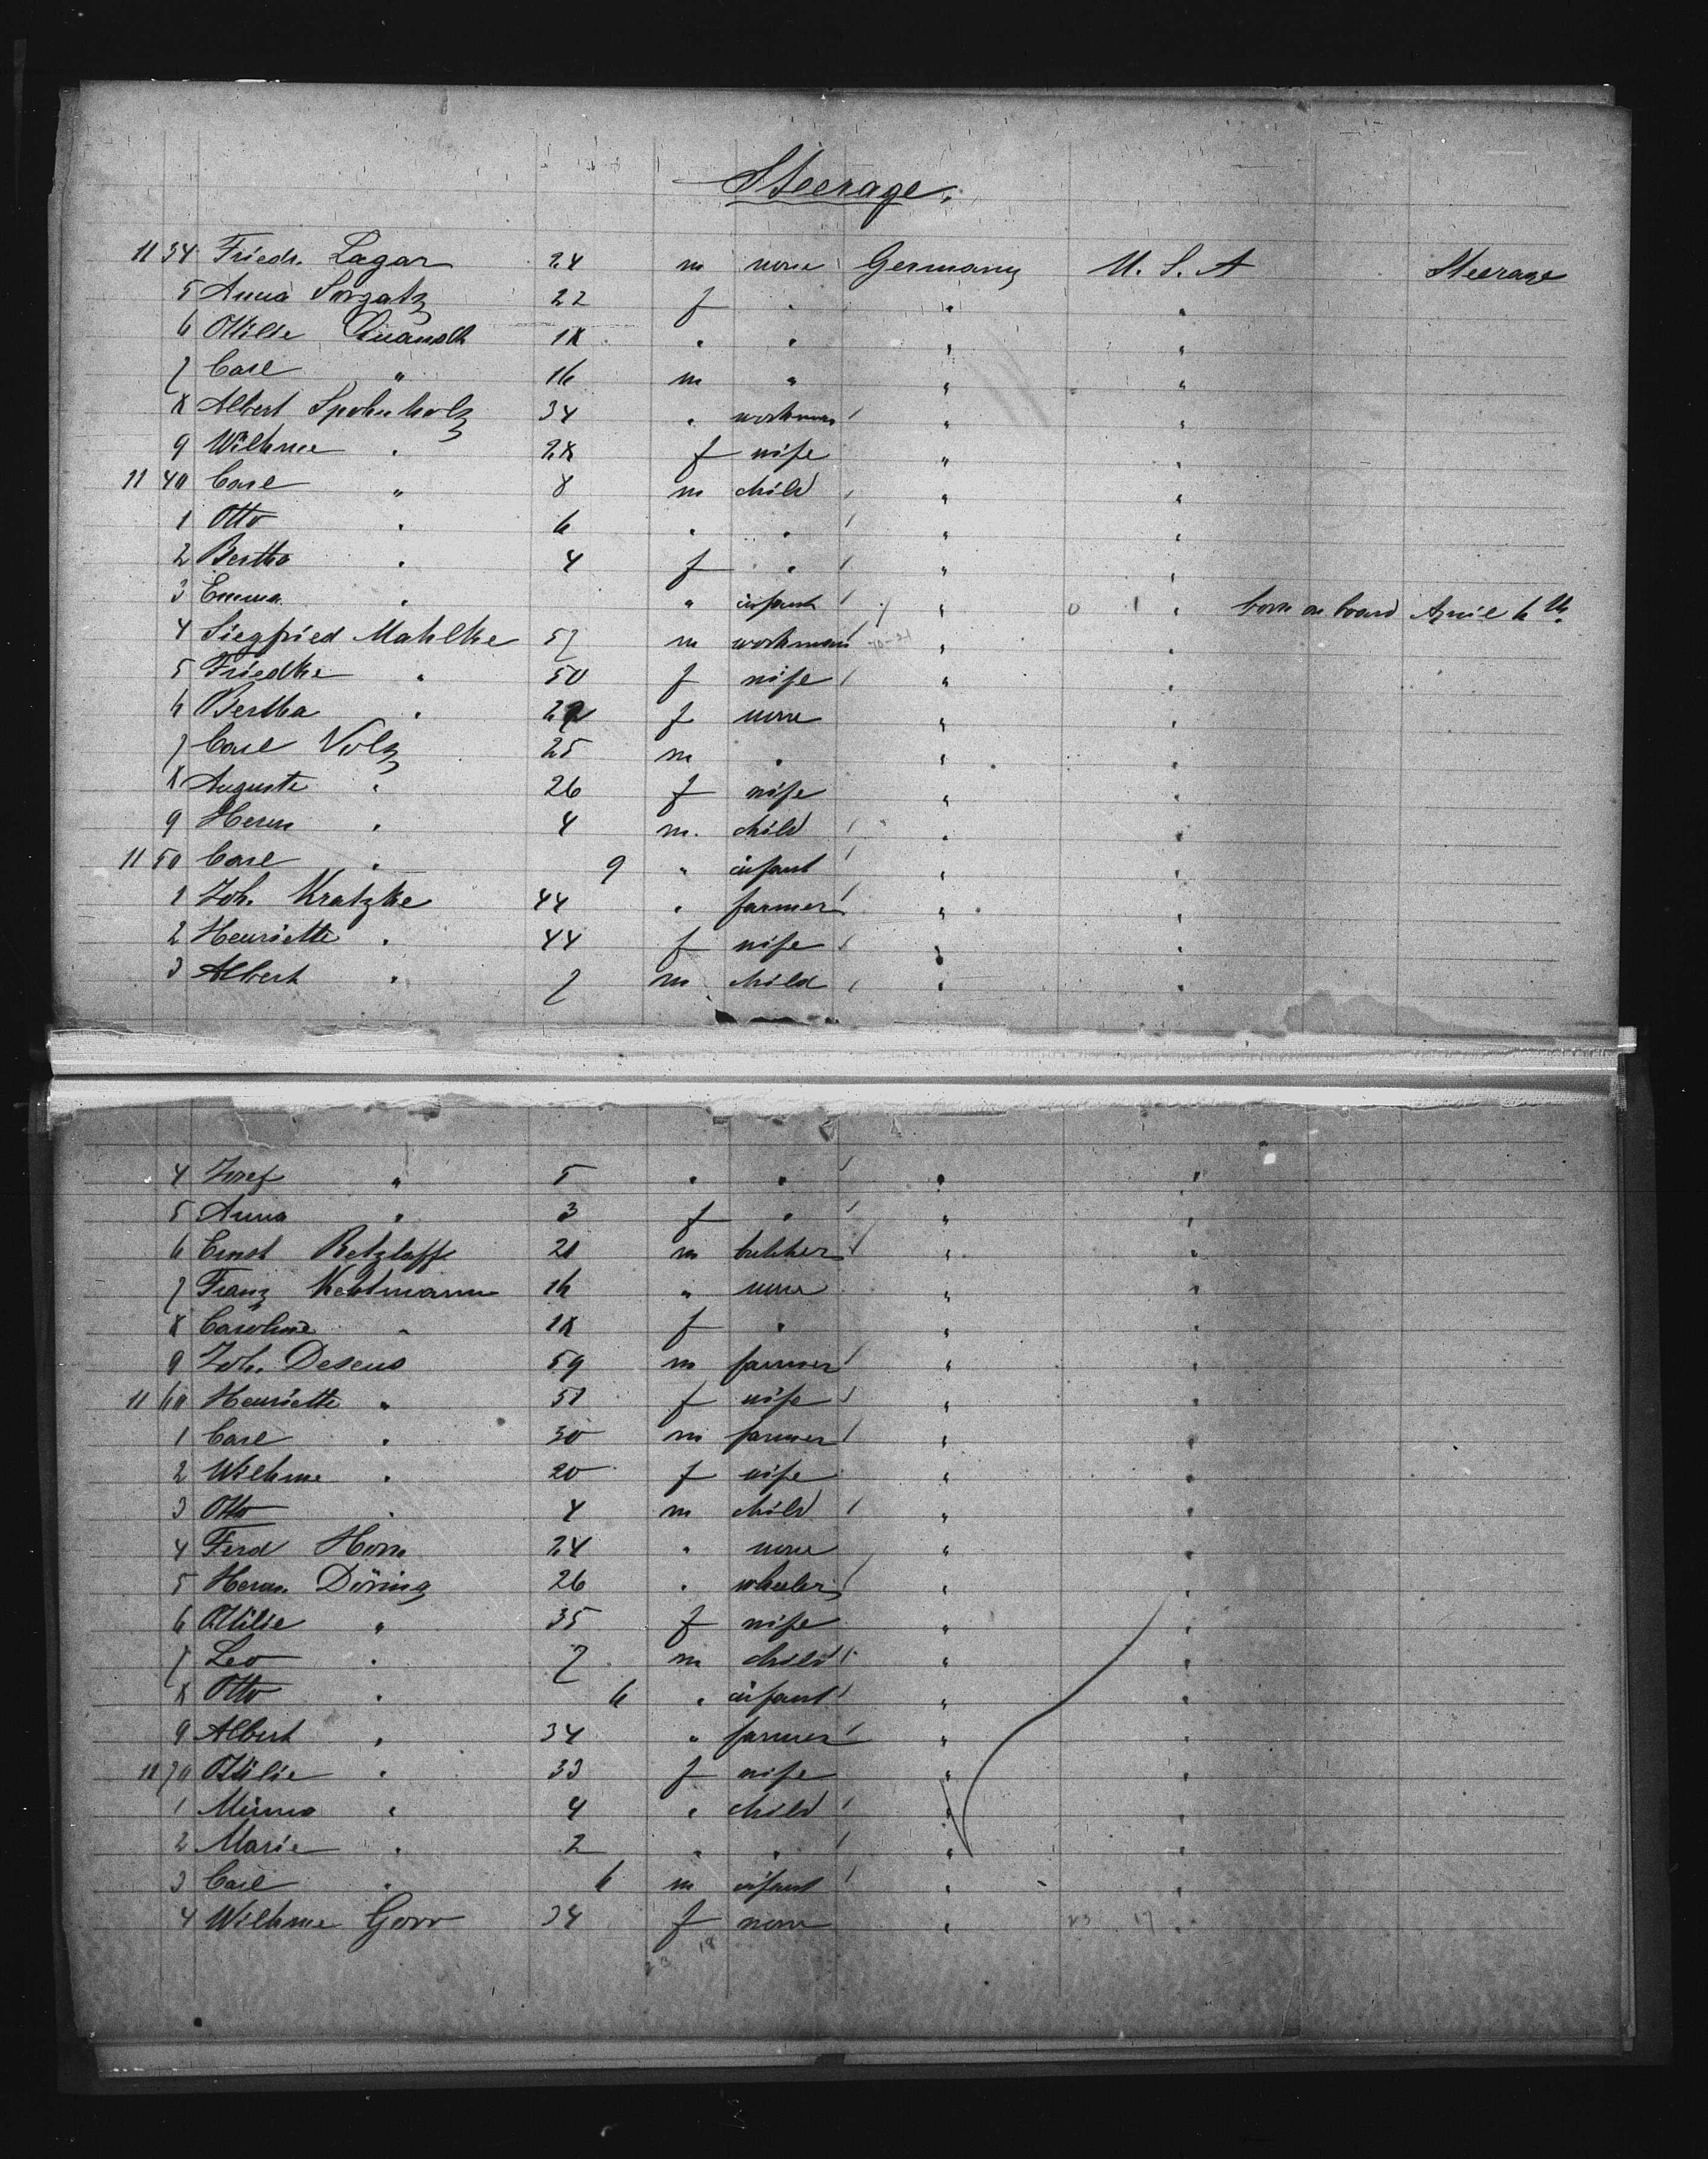 Steerage.
11 34 Friedr. Lagar 24 m none Germany U. S. A Steerage
5 Anna Sorgatz 22 f " " "
6 Ottilie Quandt 18 " " " "
7 Carl " 16 m " " "
8 Albert Spohnholz 34 " workman " "
9 Wilhme " 28 f wife " "
11 40 Carl " 8 m child " "
1 Otto " 6 " " " "
2 Bertha " 4 f " " "
3 Emma " " infant " 0 1 " born on board April 6th.
4 Siegfried Mahlke 57 m workman " "
5 Friedke " 50 f wife " "
6 Bertha " f none " "
7 Carl Volz 25 m " " "
8 Auguste " 26 f wife " "
9 Herm " 4 m. child " "
11 50 Carl " 9 " infant " "
1 Joh. Kratzke 44 " farmer " "
2 Henriette " 44 f wife " "
3 Albert " 7 m child " "
4 Josef " 5 " " " "
5 Anna " 3 f " " "
6 Ernst Retzlaff 21 m butcher " "
7 Franz 16 " none " "
8 Caroline " 18 f " " "
9 Joh. Deseus 59 m farmer " "
11 60 Henriette " 51 f wife " "
1 Carl " 30 m farmer " "
2 Wilhme " 20 f wife " "
3 Otto " 4 m child " "
4 Ferd Horn 24 " none " "
5 Herm. Döring 26 " wheeler " "
6 Ottilie " 35 f wife " "
7 Leo " 7 m child " "
8 Otto " 6 " infant " "
9 Albert " 34 " farmer " "
11 70 Ottilie " 33 f wife " "
1 Minna " 4 " child " "
2 Marie " 2 " " " "
3 Carl " 6 m infant " "
4 Wilhme Gorr 34 f none " 23 17 "
23 18